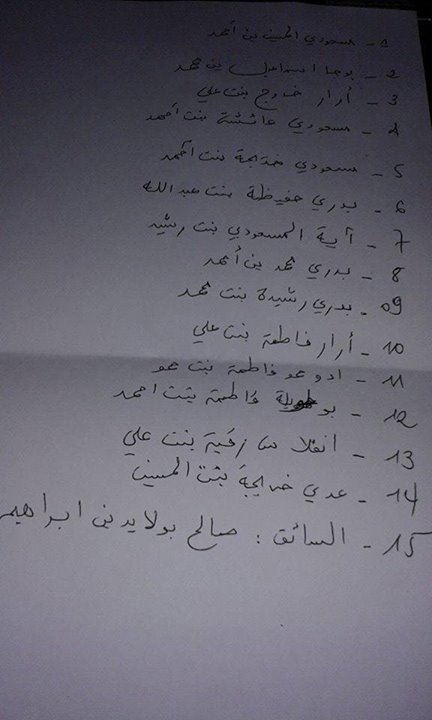 1 - مسعودي الحسين بن أحمد
2 - بوجا اسماعيل بن محمد
3 - أرار خدوج بنت علي
4 - مسعودي عائشة بنت أحمد
5 - مسعودي خديجة بنت أحمد
6 - بدري حفيظة بنت عبد الله
7 - آية المسعودي بنت رشيد
8 - بدري محمد بن أحمد
09 - بدري رشيدة بنت محمد
10 - أرار فاطمة بنت علي
11 - ادوعمو فاطمة بنت عمو
12 - فاطمة بنت احمد
13 - رقية بنت علي
14 - عدي خديجة بنت الحسين
15 - السائق : صالح بولايد بن ابراهيم